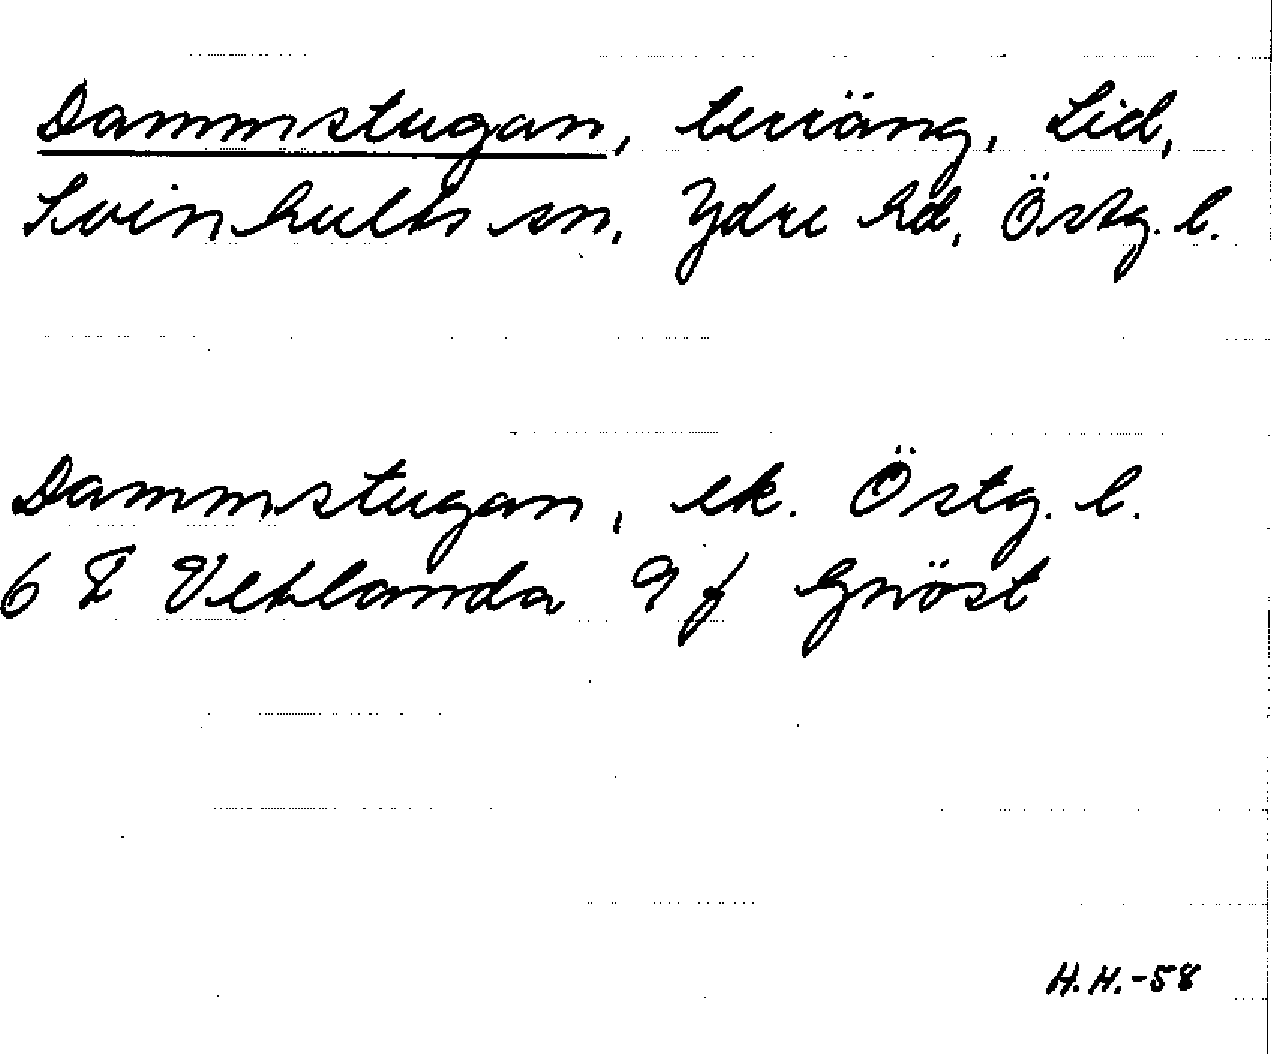 Dammstugan, terräng, Lid,
Svinhults sn, Ydre hd, Östg. l.
Dammstugan, ek. Östg. l.
6 F Vetlanda 9 f Gnöst
H.H.-58